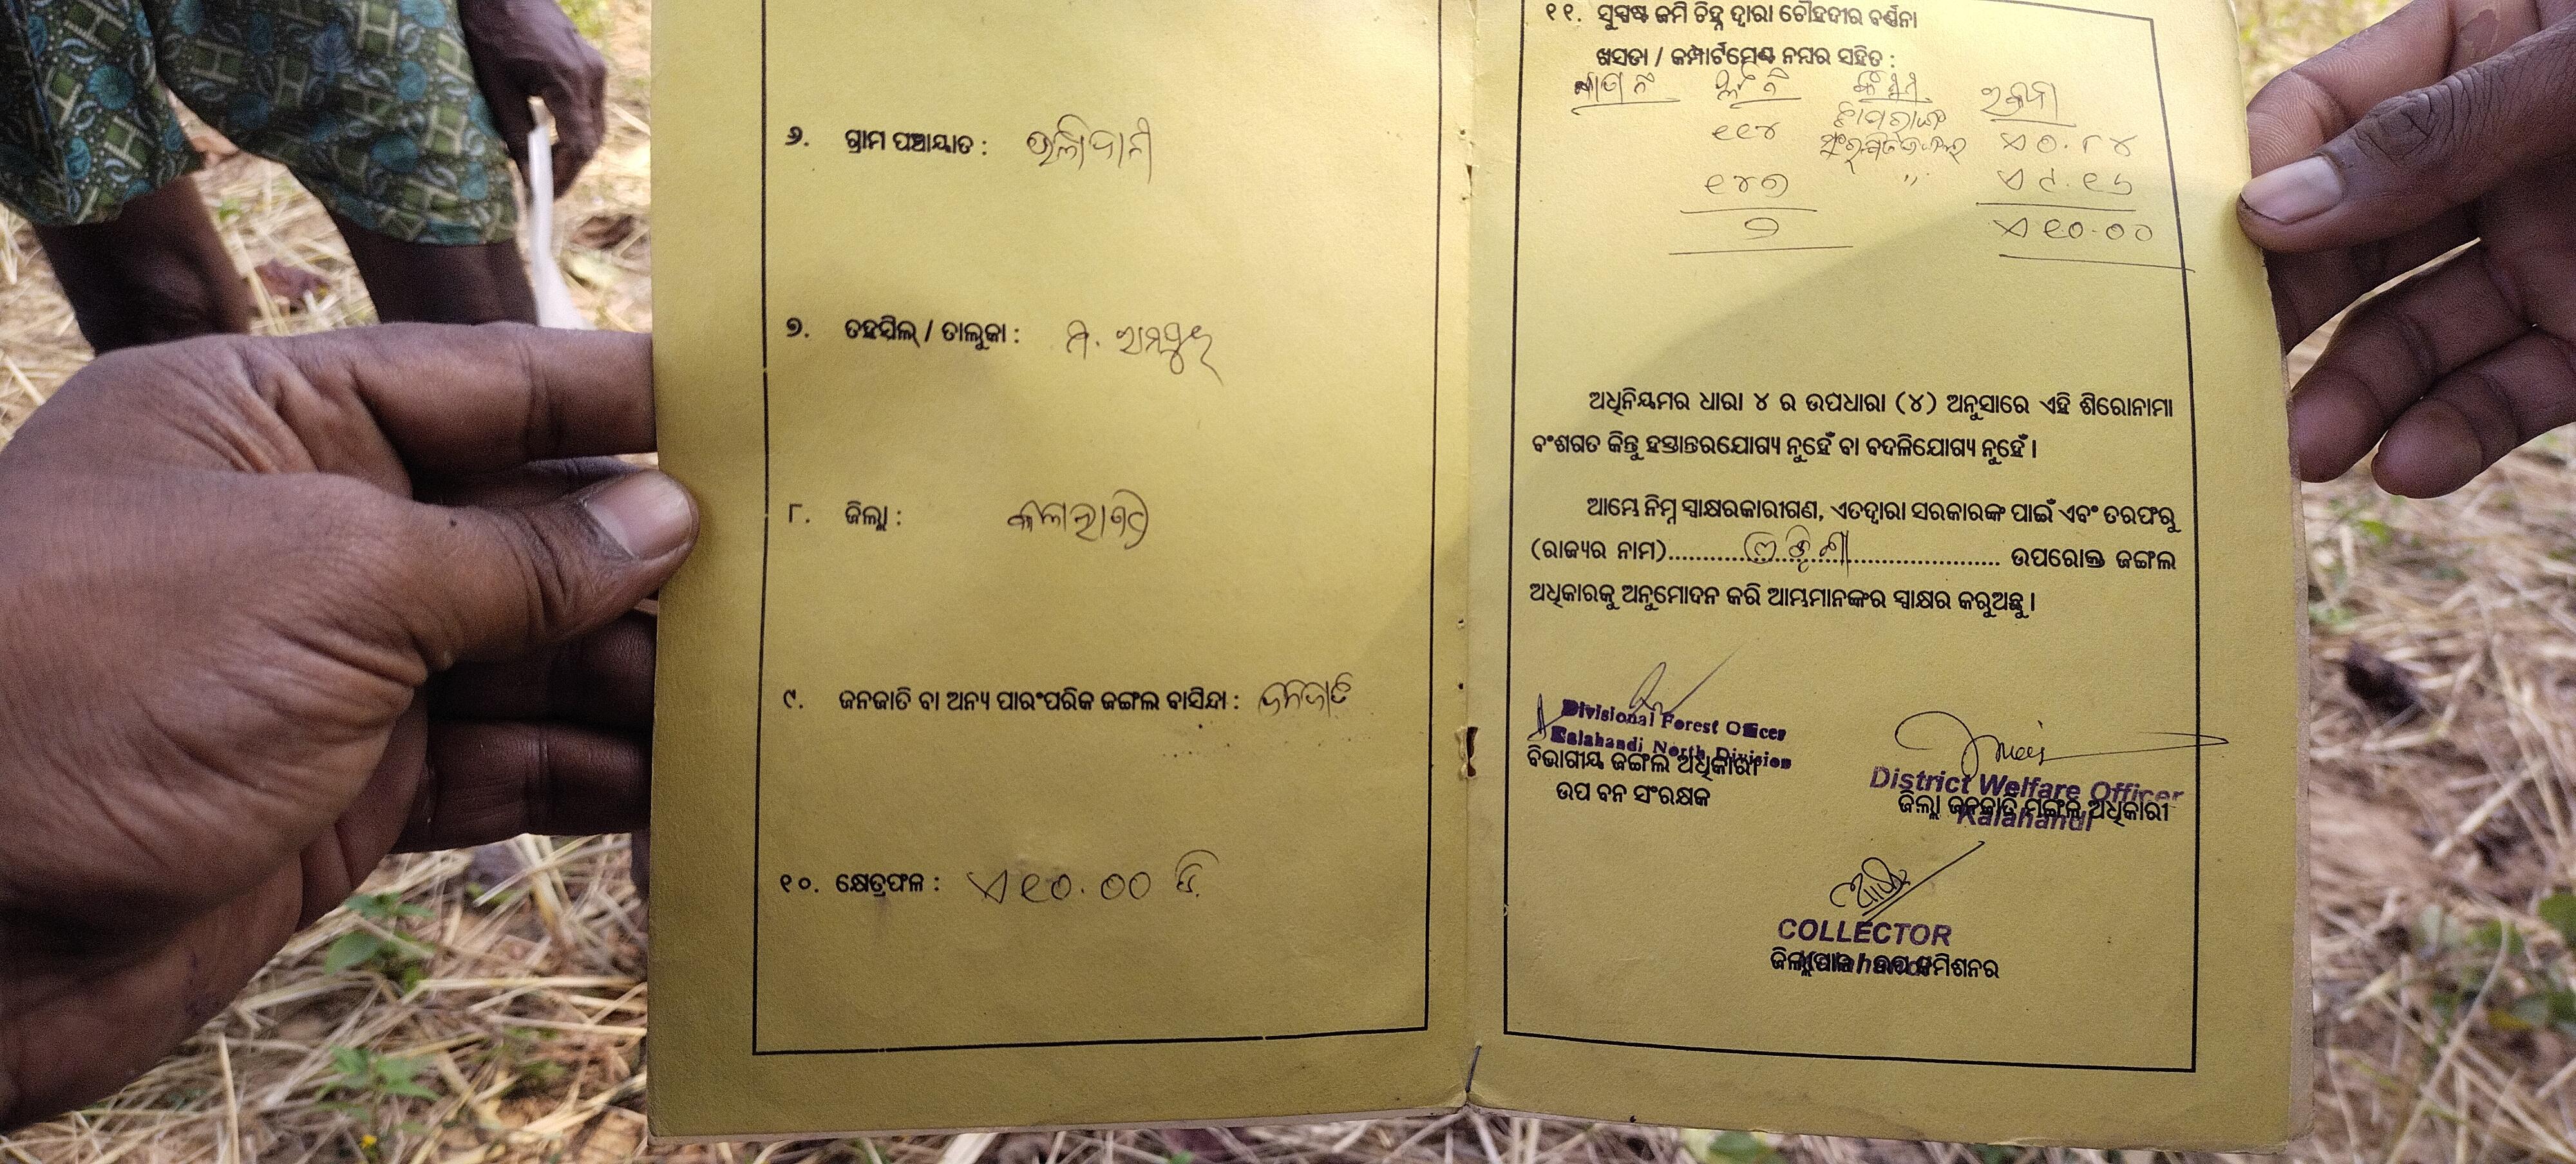 ୬. ଗ୍ରାମ ପଞ୍ଚାୟାତ :
୭. ତହସିଲ୍ / ତାଲୁକା : ମ. ରାମପୁର
୮. ଜିଲ୍ଲା : କଳାହାଣ୍ଡି
୯. ଜନଜାତି ବା ଅନ୍ୟ ପାରଂପରିକ ଜଙ୍ଗଲ ବାସିନ୍ଦା : ଜନଜାତି
୧୦. କ୍ଷେତ୍ରଫଳ : ଏ ୧୦.୦୦ ଡି.
୧୧. ସୁସ୍ପଷ୍ଟ ଜମି ଚିହ୍ନ ଦ୍ୱାରା ଚୌହଦୀର ବର୍ଣ୍ଣନା
ଖସଡା / କମ୍ପାର୍ଟମେଣ୍ଟ ନମ୍ବର ସହିତ :
ଖାତା ନଂ ପ୍ଲଟ ନଂ କିସମ ରକବା
୧୧୪ ଏ ୦.୮୪
୧୪୭ " ଏ ୯.୧୬
୨ ଏ ୧୦.୦୦
ଅଧିନିୟମର ଧାରା ୪ ର ଉପଧାରା (୪) ଅନୁସାରେ ଏହି ଶିରୋନାମା
ବଂଶଗତ କିନ୍ତୁ ହସ୍ତାନ୍ତରଯୋଗ୍ୟ ନୁହେଁ ବା ବଦଳିଯୋଗ୍ୟ ନୁହେଁ ।
ଆମ୍ଭେ ନିମ୍ନ ସ୍ୱାକ୍ଷରକାରୀଗଣ, ଏତଦ୍ୱାରା ସରକାରଙ୍କ ପାଇଁ ଏବଂ ତରଫରୁ
(ରାଜ୍ୟର ନାମ)..........ଓଡ଼ିଶା.......... ଉପରୋକ୍ତ ଜଙ୍ଗଲ
ଅଧିକାରକୁ ଅନୁମୋଦନ କରି ଆମ୍ଭମାନଙ୍କର ସ୍ୱାକ୍ଷର କରୁଅଛୁ ।
Divisional Forest Officer
Kalahandi North Division
ବିଭାଗୀୟ ଜଙ୍ଗଲ ଅଧିକାରୀ
ଉପ ବନ ସଂରକ୍ଷକ
District Welfare Officer
Kalahandi
ଜିଲ୍ଲା ଜନଜାତି ମଙ୍ଗଳ ଅଧିକାରୀ
COLLECTOR
Kalahandi
ଜିଲ୍ଲାପାଳ / ଉପ କମିଶନର